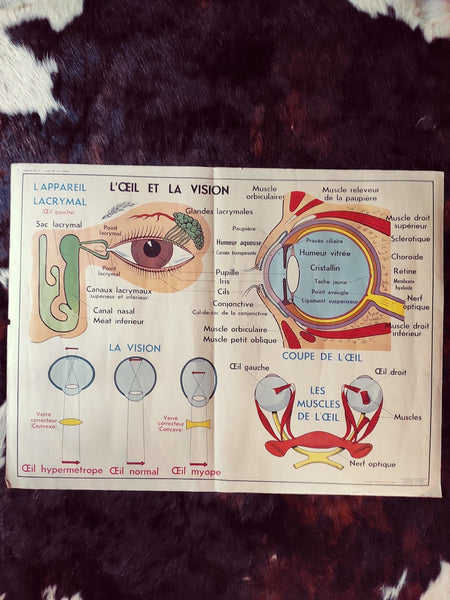 L'ŒIL ET LA VISION
L'APPAREIL
LACRYMAL
(Œil gauche)
Sac lacrymal
Point
lacrymal
Glandes lacrymales
Point
lacrymal
Canaux lacrymaux
supérieur et inférieur
Canal nasal
Méat inférieur
Pupille
Iris
Cils
Conjonctive
Cul-de-sac de la conjonctive
Muscle
orbiculaire
Muscle releveur
de la paupière
Paupière
Humeur aqueuse
Cornée transparente
Procès ciliaire
Humeur vitrée
Cristallin
Tache jaune
Point aveugle
Ligament suspenseur
Muscle droit
supérieur
Sclérotique
Choroïde
Rétine
Membrane
hyaloïde
Nerf
optique
Muscle droit
inférieur
Muscle orbiculaire
Muscle petit oblique
COUPE DE L'ŒIL
LA VISION
Verre
correcteur
(Convexe)
Verre
correcteur
(Concave)
Œil hypermétrope
Œil normal
Œil myope
Œil gauche
Œil droit
LES
MUSCLES
DE L'ŒIL
Muscles
Nerf optique